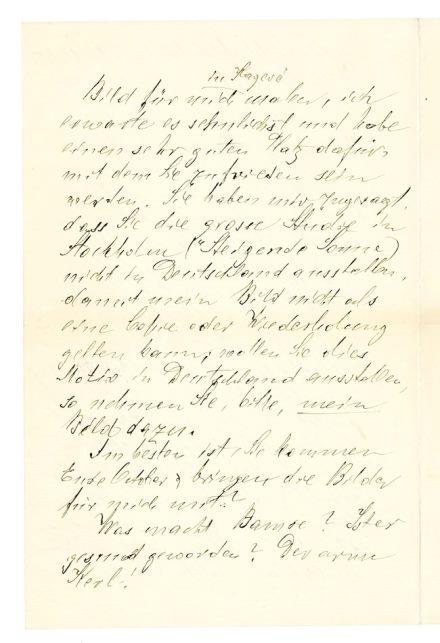 in Kragerö
Bild für mich malen, ich
erwarte es sehnlichst und habe
einen sehr guten Platz dafür,
mit dem Sie zufrieden sein
werden. Sie haben mir zugesagt,
dass Sie die grosse Studie in
Stockholm ("Steigende Sonne")
nicht in Deutschland ausstellen,
damit mein Bild nicht als
eine Copie oder Wiederholung
gelten kann; wollen Sie dies
Motiv in Deutschland ausstellen,
so nehmen Sie, bitte, mein
Bild dazu.
Am besten ist, Sie kommen
Ende October & bringen die Bilder
für mich mit?
Was macht Bamse? Ist er
gesund geworden? Der arme
Kerl!